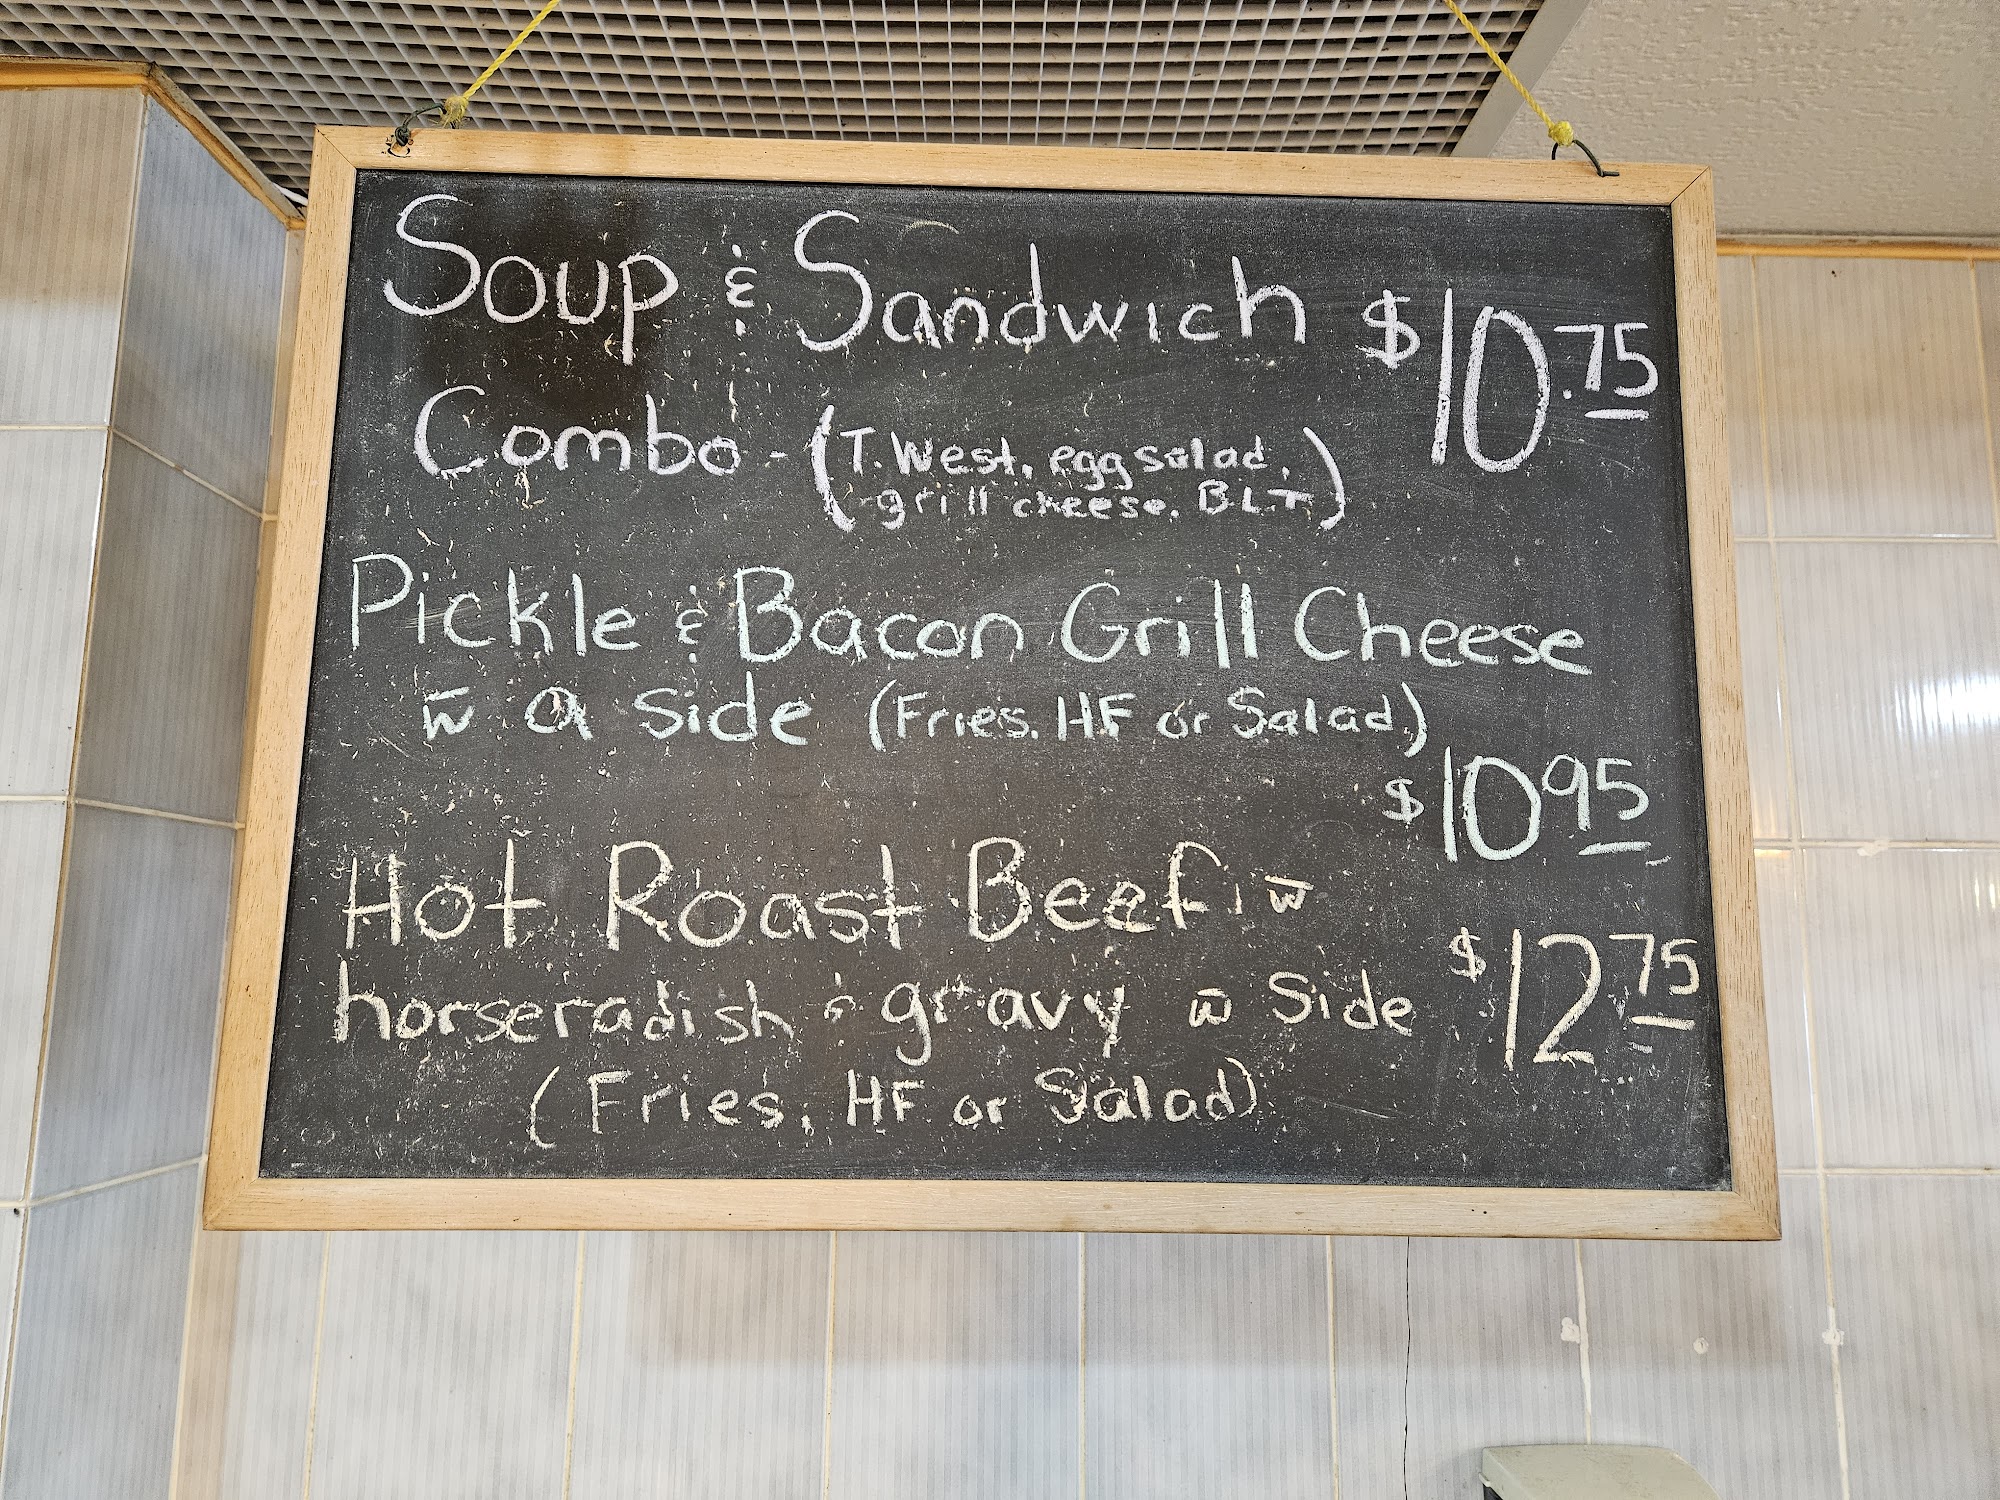 Soup & Sandwich $10.75
Combo - (T. West, egg salad,
grill cheese. B.L.T.)
Pickle & Bacon Grill Cheese
w̅ a side (Fries. HF or Salad)
$10 95
Hot Roast Beef w̅
horseradish & gravy w̅ Side $12 75
(Fries, HF or Salad)